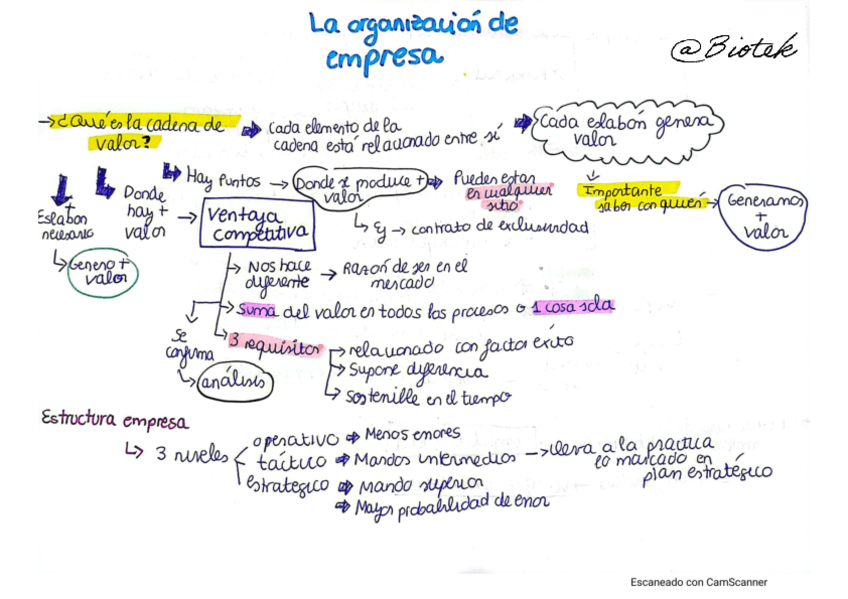 La organización de
empresa
@Biotek
→ ¿Qué es la cadena de
valor?
Cada elemento de la
cadena está relacionado entre sí
Cada eslabón genera
valor
Eslabón
+
necesario
Genero +
valor
Donde
hay +
valor
Hay puntos → Donde se produce +
valor
Pueden estar
en cualquier
sitio
Importante
saber con quién → Generamos
+
valor
Ventaja
competitiva
Ej → contrato de exclusividad
Nos hace
diferente → Razón de ser en el
mercado
Suma del valor en todos los procesos o 1 cosa sola
Se
confirma
análisis
3 requisitos
relacionado con factor éxito
Supone diferencia
Sostenible en el tiempo
Estructura empresa
3 niveles
operativo ⇒ Menos errores
táctico ⇒ Mandos intermedios → lleva a la práctica
lo marcado en
plan estratégico
estratégico ⇒ Mando superior
⇒ Mayor probabilidad de error
Escaneado con CamScanner